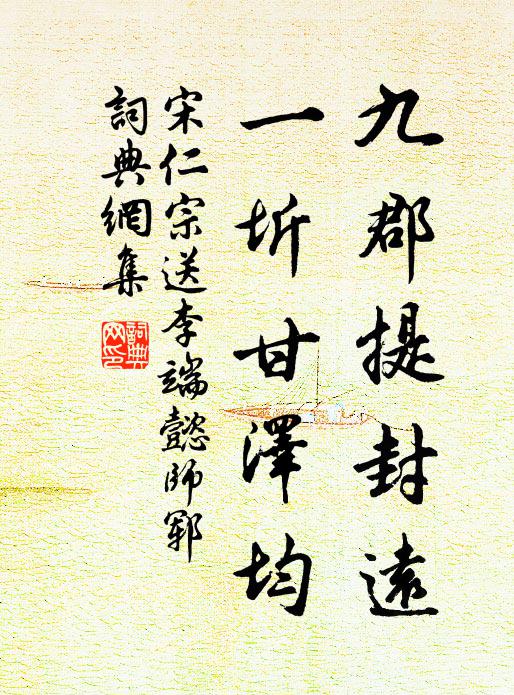 九郡提封遠
一圻甘澤均
宋仁宗送李端懿師鄆
詞典網集
詞典網印